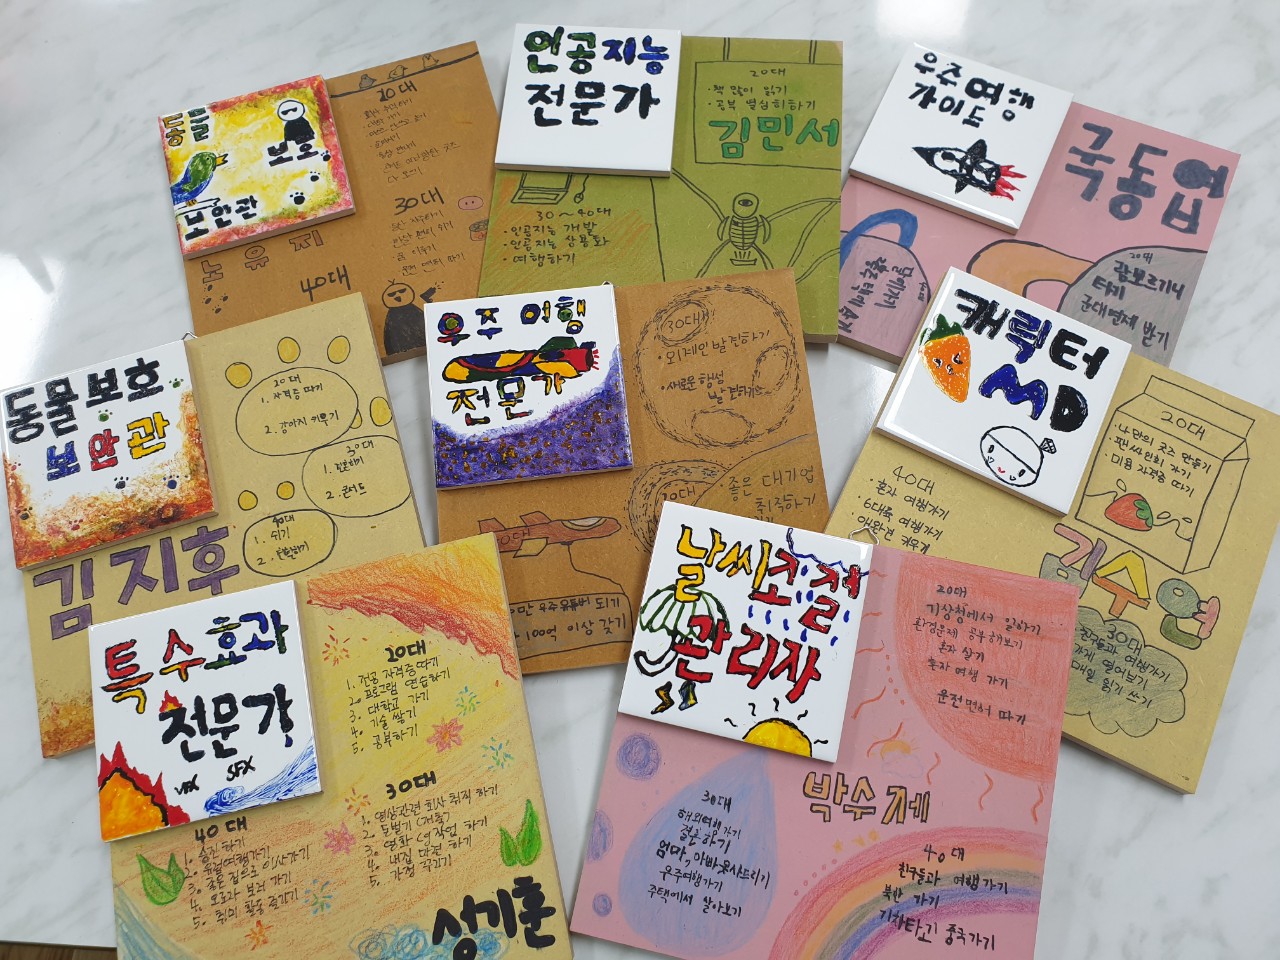 동물
보호
보안관
노유지
20대
30대
40대
인공지능
전문가
20대
·책 많이 읽기
·공부 열심히하기
김민서
30~40대
·인공지능 개발
·인공지능 상용화
·여행하기
우주여행
가이드
국동업
20대
람보르기니
타기
군대면제 받기
동물보호
보안관
김지후
20대
1. 자격증 따기
2. 강아지 키우기
30대
1. 결혼하기
2. 콘서트
40대
1. 쉬기
2.
우주여행
전문가
30대
·외계인 발견하기
·새로운 행성
발견하기
20대
좋은 대기업
취직하기
만 우주유튜버 되기
100억 이상 갖기
캐릭터
MD
20대
·나만의 굿즈 만들기
·팬싸인회 가기
·미용 자격증 따기
40대
·혼자 여행가기
·6대륙 여행가기
·애완견 키우기
김수
30대
친구들과 여행가기
가게 열어보기
매일 일기 쓰기
특수효과
전문가
VFX SFX
20대
1. 전공 자격증따기
2. 프로그램 연습하기
3. 대학교 가기
4. 기술 쌓기
5. 공부하기
30대
1. 영상관련 회사 취직 하기
2. 돈벌기 (저축)
3. 영화 CG작업 하기
4. 내집 마련 하기
5. 가정 꾸리기
40대
1. 승진 하기
2. 유럽여행가기
3. 좋은 집으로 이사가기
4. 오로라 보러 가기
5. 취미 활동 즐기기
성기훈
날씨조절
관리자
20대
기상청에서 일하기
환경문제 공부해보기
혼자 살기
혼자 여행 가기
운전면허 따기
박수제
30대
해외여행가기
결혼하기
엄마, 아빠 옷사드리기
우주여행가기
주택에서 살아보기
40대
친구들과 여행가기
북한 가기
기차타고 중국가기